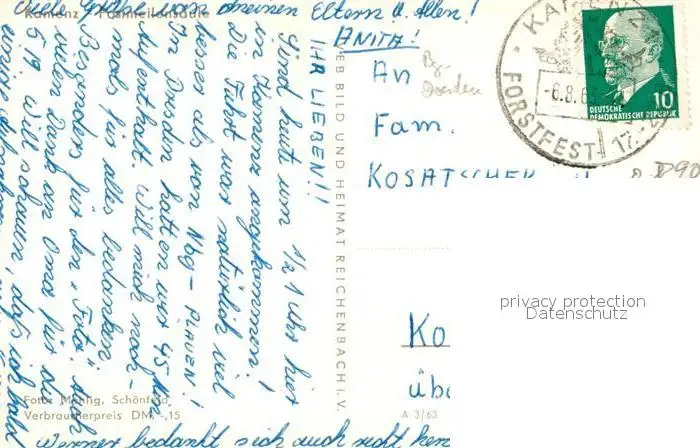 Viele Grüße von meinen Eltern u. Allen!
ANITA!
Kamenz Postmeilensäule
IHR LIEBEN!!
Sind heut um 1/2 1 Uhr hier
in Kamenz angekommen!
Die Fahrt war natürlich viel
besser als von Nbg - PLAUEN!
In Dresden hatten wir 45 Min
Aufenthalt. Will mich noch-
mals für alles bedanken
Besonders für den "Foto"
vielen Dank an Oma für die
5,- will schauen, daß ich
Werner bedankt sich auch recht
Foto: Mehlig, Schönfeld
Verbraucherpreis DM -,15
VEB BILD UND HEIMAT REICHENBACH i. V.
A 3/63
An
Fam.
KOSATSCHEK
Ko
übe
Dresden
KAMENZ
-6.8.63
FORSTFEST 17.-
DEUTSCHE
DEMOKRATISCHE REPUBLIK
10
D90
privacy protection
Datenschutz